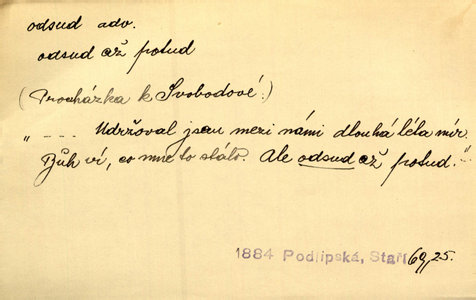 odsud adv.
odsud až potud
(Procházka k Svobodové:)
„ - - - - Udržoval jsem mezi námi dlouhá léta mír.
Bůh ví, co mne to stálo. Ale odsud až potud. - "
1884 Podlipská, Staří 69, 25.